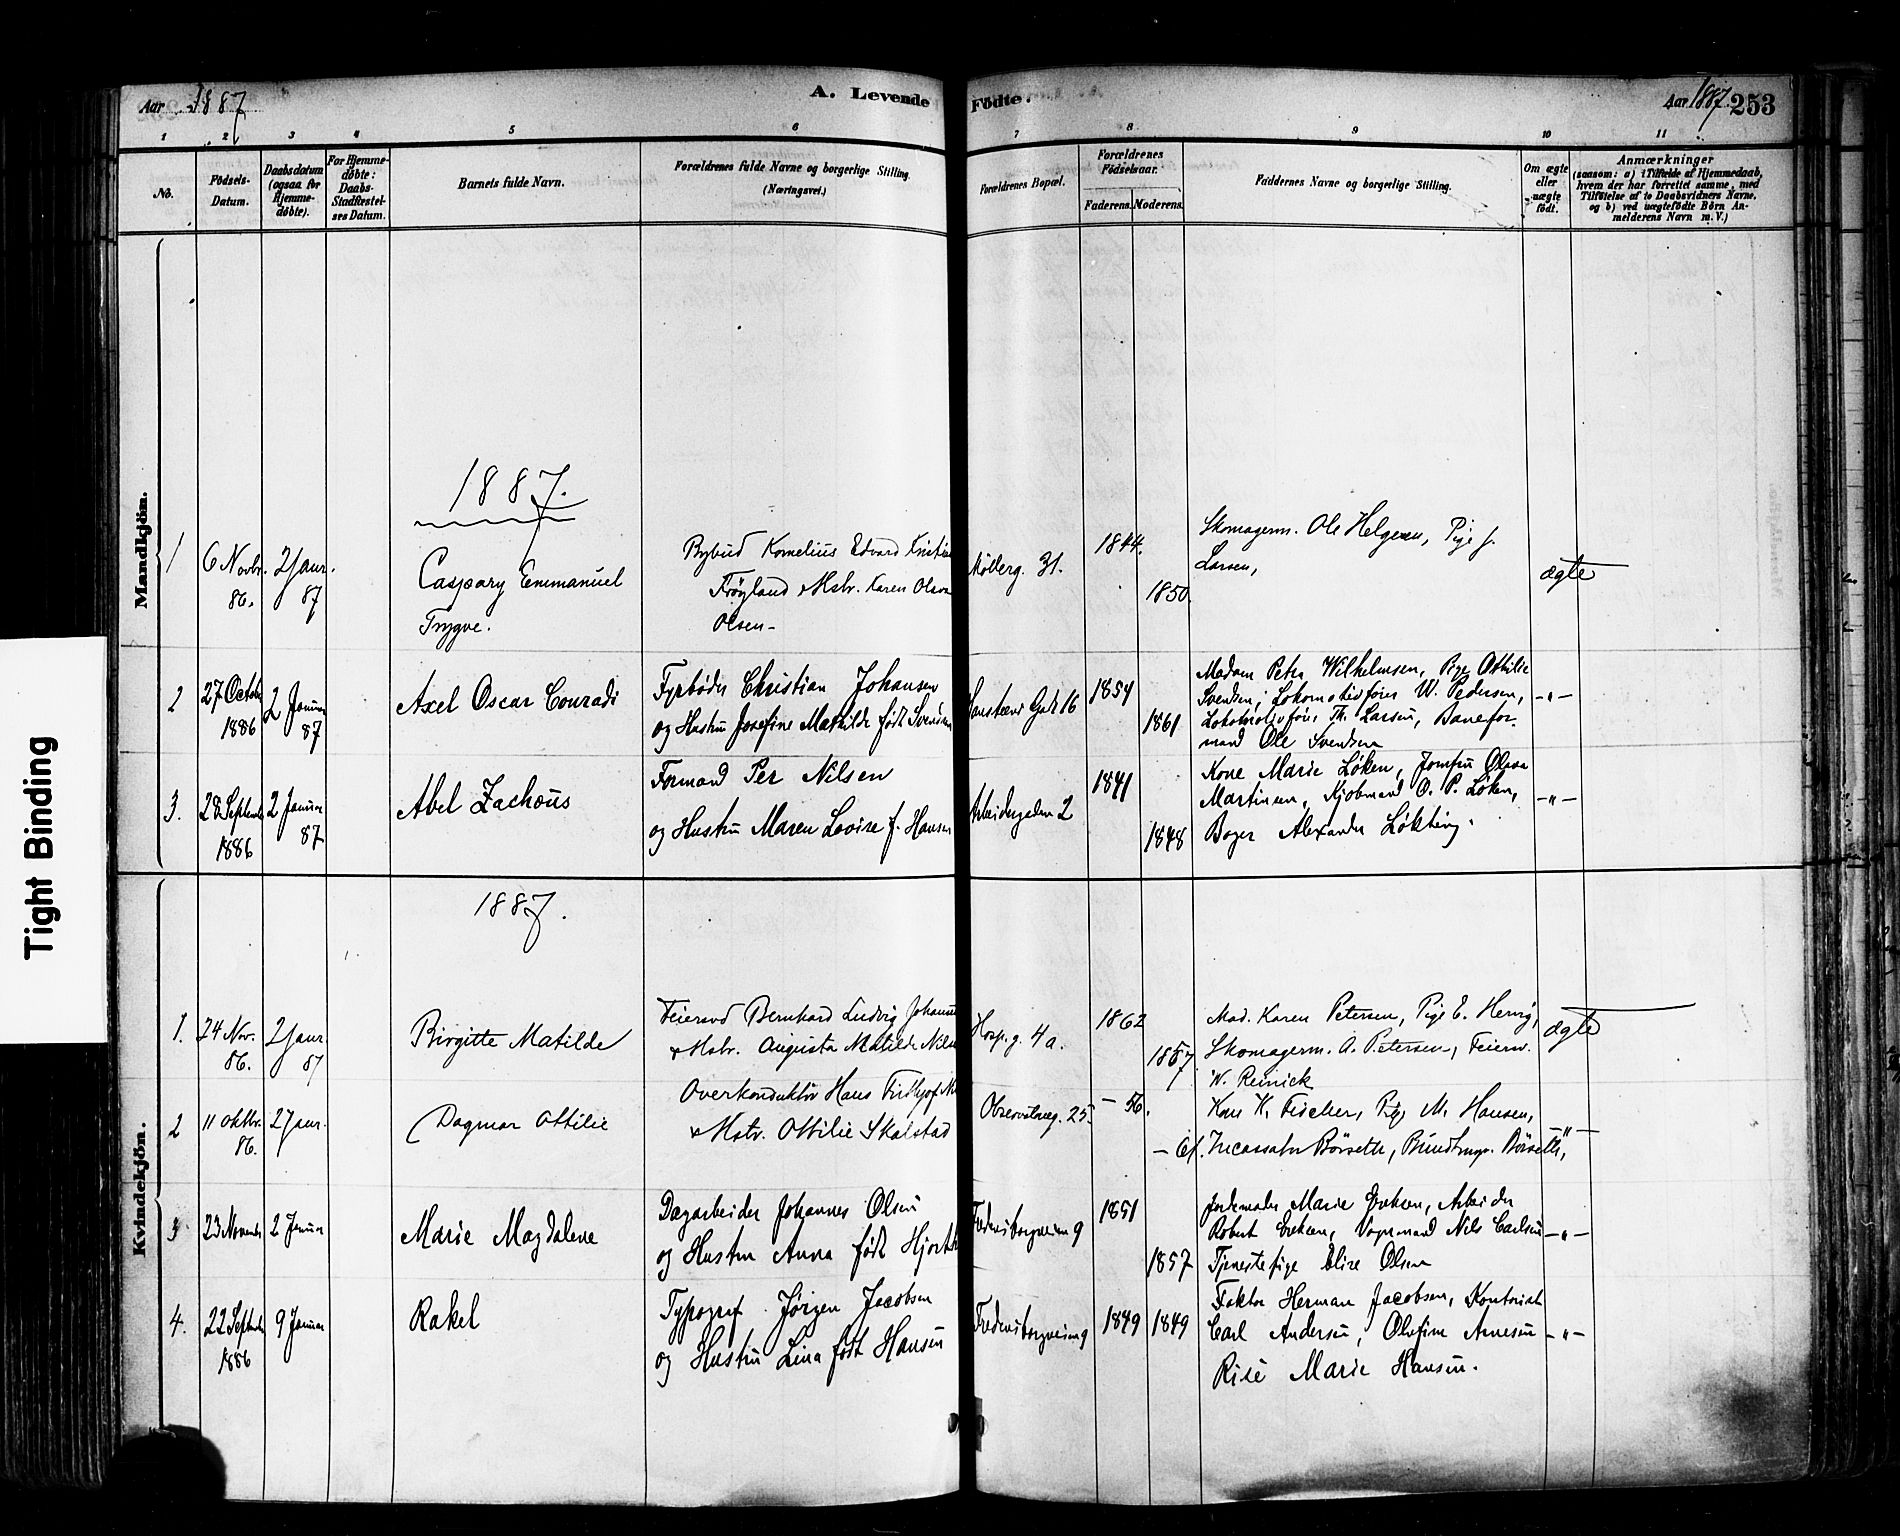 Tight Binding
Aar 1887 A. Levende Födte. Aar 1887. 253
1 2 3 4 5 6 7 8 9 10 11
No.
Födsels-Datum.
Daabsdatum (ogsaa for Hjemme-döbte).
For Hjemme-döbte: Daabs-Stadfæstel-ses Datum.
Barnets fulde Navn.
Forældrenes fulde Navne og borgerlige Stilling. (Næringsvei.)
Forældrenes Bopæl.
Forældrenes Födselsaar.
Faderens. Moderens.
Faddernes Navne og borgerlige Stilling.
Om ægte eller uægte födt.
Anmærkninger
(saasom: a) i Tilfælde af Hjemmedaab,
hvem der har forrettet samme, med
Tilföielse af to Daabsvidners Navne,
og b) ved uægtefödte Börn An-
melderens Navn m. V.)
Mandkjön.
1887.
1 6 Novbr. 86. 2 Janr. 87
Caspary Emmanuel
Trygve.
Bybud Kornelius Edvard Kristia
Frøyland & Hstr. Karen Olava
Olsen
Møllerg. 31.
1844.
1850.
Skomagerm. Ole Helgesen, Pige J.
Larsen,
ægte
2 27 Octob 1886 2 Januar 87
Axel Oscar Conradi
Fyrbøder Christian Johansen
og Hustru Josefine Mathilde født Svendsen
Hansteens Gade 16
1854
1861
Madam Petra Wilhelmsen, Pige Othilie
Svendsen, Lokomotivfører W. Pedersen,
Lokomotivfører Th. Larsen, Banefor-
mand Ole Svendsen
-"-
3. 28 Septemb 1886 2 Januar 87
Abel Zachæus
Formand Per Nilsen
og Hustru Maren Lovise f. Hansen
Arbeidergaden 2
1841
1848
Kone Marie Løken, Jomfru Olava
Martinsen, Kjøbmand O. P. Løken,
Bager Alexander Løkting.
-"-
Kvindekjön.
1887.
1. 24 Nov. 86. 2 Janr. 87
Birgitte Matilde
Feiersvd Bernhard Ludvig Johansen
& Hstr. Augusta Matilde Nilsen
Hosp.g. 4 a.
1862
1857
Mad. Karen Petersen, Pige E. Herrig,
Skomagerm. A. Petersen, Feiersv.
W. Reinick
ægte
2 11 Oktbr. 86. 2 Janr.
Dagmar Ottilie
Overkonduktør Hans Fridtjof
& Hstr. Ottilie Skalstad
Observatoveg. 25.
- 56.
- 61.
Kone K. Fischer, Pige M. Hansen,
Incassator Børseth, Bundtmgr. Børseth,
-"-
3 23 November 2 Januar
Marie Magdalene
Dagarbeider Johannes Olsen
og Hustru Anna født Hjorth
Fredensborgveien 9
1851
1857
Jordemoder Marie Eriksen, Arbeider
Robert Eriksen, Vognmand Nils Carlsen
Tjenestepige Elise Olsen
-"-
4. 22 Septemb 1886 9 Januar
Rakel
Typograf Jørgen Jacobsen
og Hustru Lina født Hansen
Fredensborgveien 9
1849 1849
Faktor Herman Jacobsen, Kontorist
Carl Andersen, Olefine Arnesen
Pige Marie Hansen.
-"-